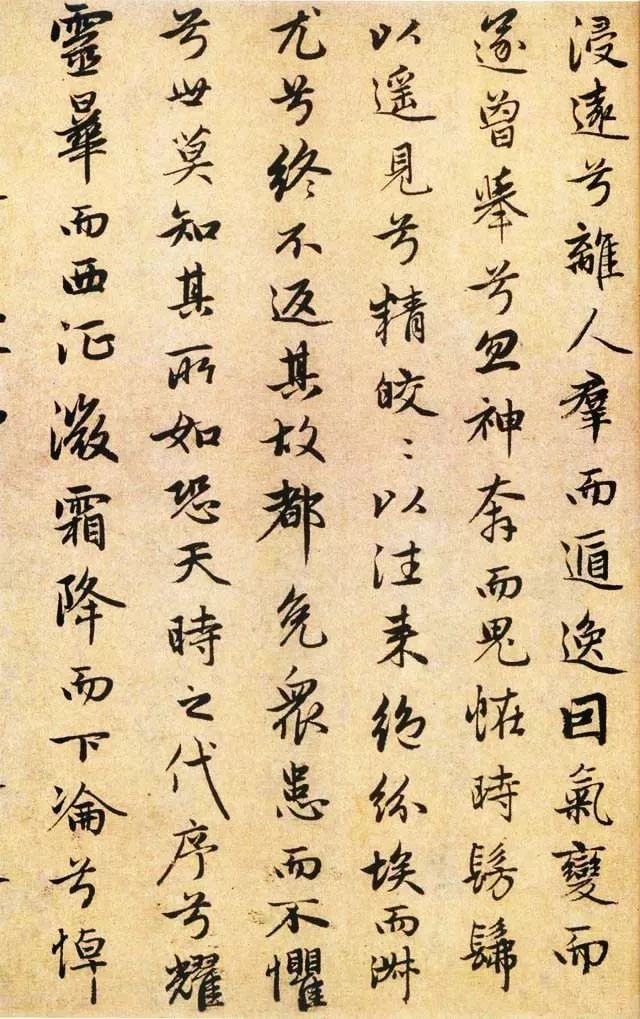 浸遠兮離人羣而遁逸因氣變而
遂曾舉兮忽神奔而鬼恠時髣髴
以遥見兮精皎〻以往来絶紛埃而淑
尤兮終不返其故都免衆患而不懼
兮世莫知其所如恐天時之代序兮耀
靈曄而西征微霜降而下淪兮悼